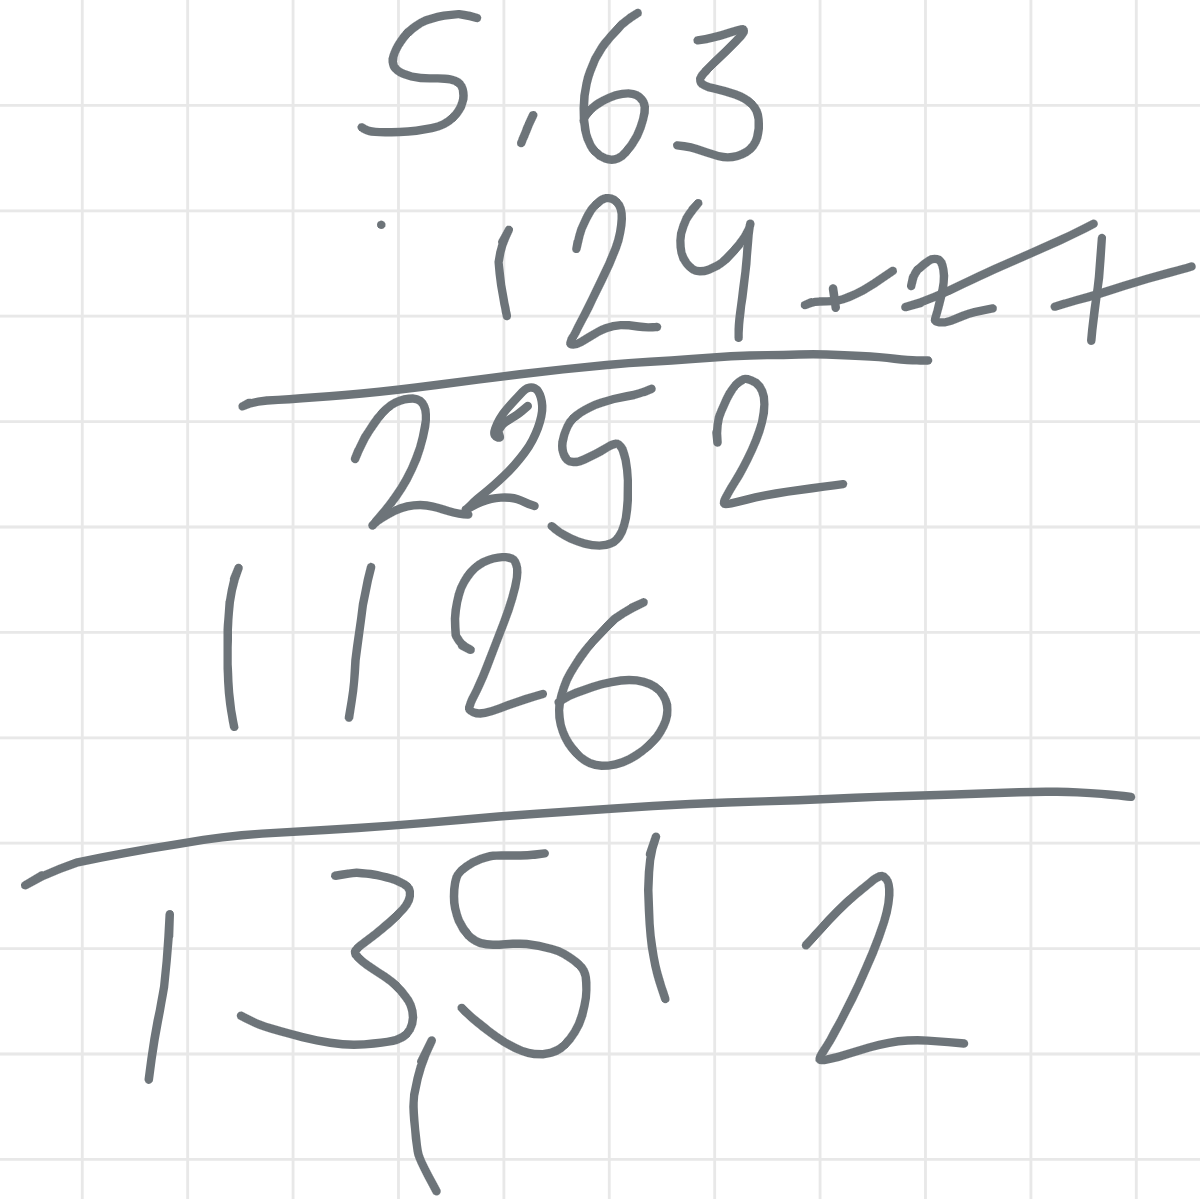 5,63
· 124
2252
1126
13,512